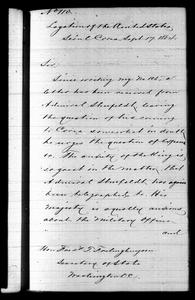 No 110.
Legation of the United States,
Seoul Corea Sept 17, 1884.
Sir:
Since writing my No 105, a
letter has been received from
Admiral Shufeldt, leaving
the question of his coming
to Corea somewhat in doubt,
he urges the question of expense
to. The anxiety of the King is,
so great in the matter, that
Admiral Shufeldt has again
been telegraphed to. His
Majesty is equally anxious
about the Military Officers
and
Hon: Fred'k T. Frelinghuysen
Secretary of State
Washington D.C.